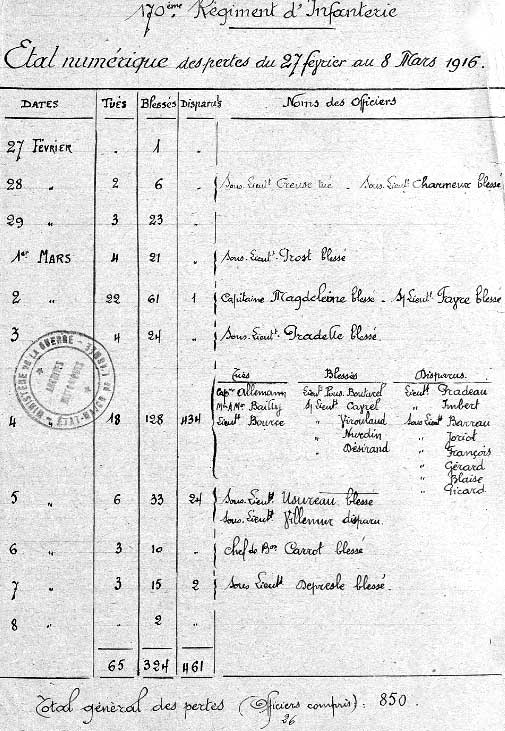 170ème Régiment d'Infanterie
Etat numérique des pertes du 27 février au 8 Mars 1916.
DATES TUÉS Blessés Disparus Noms des Officiers
27 FÉVRIER „ 1 „
28 „ 2 6 „ Sous. Lieut. Creuse tué - Sous. Lieut. Charmeux blessé
29 „ 3 23 „
1er MARS 4 21 „ Sous. Lieut. Prost blessé
2 „ 22 61 1 Capitaine Magdeleine blessé - S/Lieut. Fayre blessé
3 „ 4 24 „ Sous. Lieut. Pradelle blessé.
4 „ 18 128 434
Tués Blessés Disparus.
Capne Allemann Lieut. Pous. Boutarel Lieut. Pradeau
Bailly S/Lieut. Cayrel „ Imbert
Lieut. Bource „ Viroulaud Sous Lieut. Barrau
„ Nurdin „ Joriot
„ Désirand „ François
„ Gérard
„ Blaise
„ Picard
5 „ 6 33 24 Sous. Lieut. Usureau blessé
Sous. Lieut. Villemur disparu.
6 „ 3 10 „ Chef de Bon Carrot blessé
7 „ 3 15 2 Sous Lieut. Depresle blessé.
8 „ 2 „
65 324 461
Total général des pertes (Officiers compris): 850.
26
MINISTÈRE DE LA GUERRE
ARCHIVES HISTORIQUES